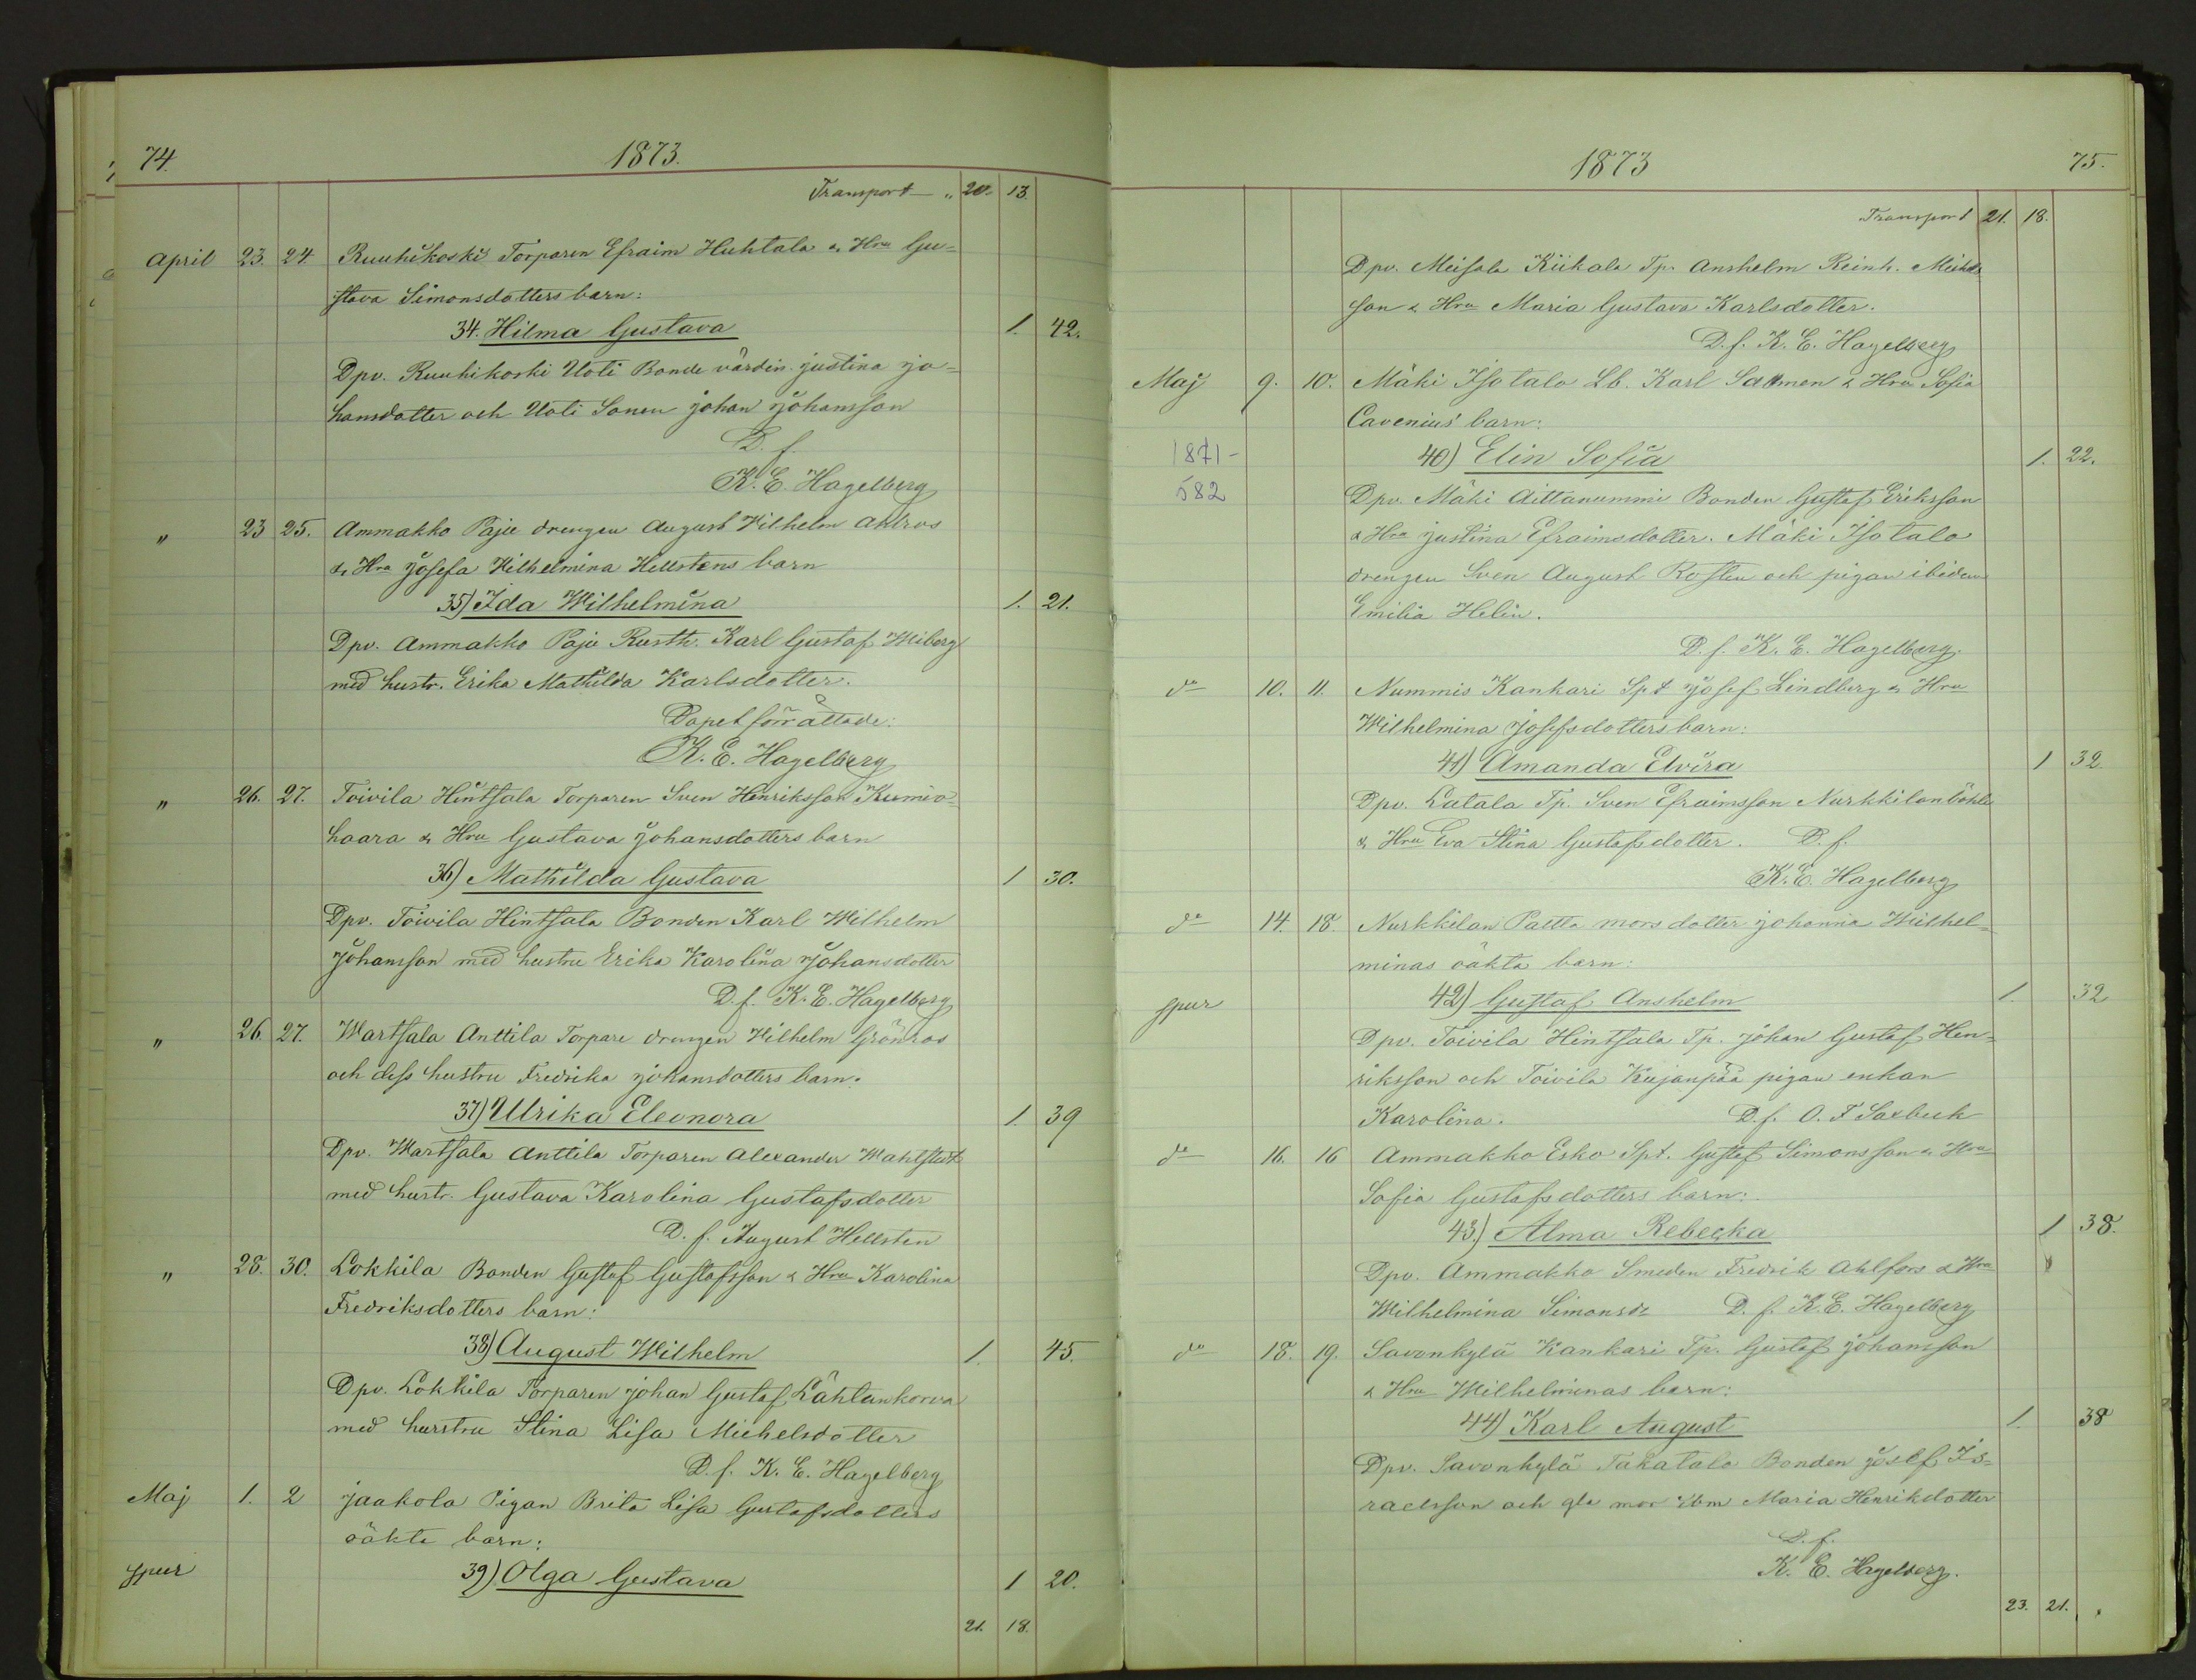 74. 1873.
Transport „ 20. 13.
April 23. 24. Ruuhikoski Torparen Efraim Huhtala & Hru Gu=
stava Simonsdotters barn:
34. Hilma Gustava 1. 42.
Dpv. Ruuhikoski Uoti Bonde värdin. Justina Jo=
hansdotter och Uoti Sonen Johan Johansson
D. f.
K. E. Hagelberg
„ 23 25. Ammakko Paju drengen August Wilhelm Ahlros
& Hru Josefa Wilhelmina Hellstens barn
35) Ida Wilhelmina 1. 21.
Dpv. Ammakko Paju Rusth. Karl Gustaf Wiberg
med hustr. Erika Mathilda Karlsdotter.
Dopet förrättade:
K. E. Hagelberg
„ 26. 27. Toivila Hintsala Torparen Sven Henriksson Kumio=
haara & Hru Gustava Johansdotters barn
36) Mathilda Gustava 1 30.
Dpv. Toivila Hintsala Bonden Karl Wilhelm
Johansson med hustru Erika Karolina Johansdotter
D. f. K. E. Hagelberg
„ 26 27. Wartsala Anttila Torpare drengen Wilhelm Grönroos
och dess hustru Fredrika Johansdotters barn.
37) Ulrika Eleonora 1. 39
Dpv. Wartsala Anttila Torparen Alexander Wahlstedt
med hustr. Gustava Karolina Gustafsdotter
D. f. August Hellsten
„ 28. 30. Lokkila Bonden Gustaf Gustafsson & Hru Karolina
Fredriksdotters barn:
38) August Wilhelm 1. 45.
Dpv. Lokkila Torparen Johan Gustaf Lähtankorva
med hustru Stina Lisa Michelsdotter
D. f. K. E. Hagelberg
Maj 1. 2 Jaakola Pigan Brita Lisa Gustafsdotters
oäkta barn:
spur 39) Olga Gustava 1 20.
21. 18.
1873 75.
Transport 21. 18.
Dpv. Meisala Kiikala Tp. Anshelm Reinh. Michels
son & Hru Maria Gustava Karlsdotter.
D. f. K. E. Hagelberg
Maj 9. 10. Mäki Isotalo Lb. Karl Salmen & Hru Sofia
Cavenius' barn:
1871- 40) Elin Sofia 1. 22.
582 Dpv. Mäki Aittanummi Bonden Gustaf Eriksson
& Hru Justina Efraimsdotter. Mäki Isotalo
drengen Sven August Rosten och pigan ibidem
Emilia Helin.
D. f. K. E. Hagelberg.
do 10. 11. Nummis Kankari Spt Josef Lindberg & Hru
Wilhelmina Josefsdotters barn:
41) Amanda Elvira 1 32.
Dpv. Latala Tp. Sven Efraimsson
& Hru Eva Stina Gustafsdotter. D. f.
K. E. Hagelberg
do 14. 18. Nurkkilan Pattta mors dotter Johanna Wilhel=
minas oäkta barn:
spur 42) Gustaf Anshelm 1. 32
Dpv. Toivila Hintsala Tp. Johan Gustaf Hen=
riksson och Toivila Kujanpää pigan enkan
Karolina. D. f. O. F Saxbeck
do 16. 16 Ammakko Esko Spt. Gustaf Simonsson & Hru
Sofia Gustafsdotters barn:
43.) Alma Rebecka 1 38.
Dpv. Ammakko Smeden Fredrik Ahlfors & Hru
Wilhelmina Simonsdr D. f. K. E. Hagelberg
do 18. 19. Savonkylä Kankari Tp. Gustaf Johansson
& Hru Wilhelminas barn:
44) Karl August 1. 38
Dpv. Savonkylä Takatalo Bonden Josef Is=
raelsson och gla mor ibm Maria Henrikdotter
D. f.
K. E. Hagelberg.
23. 21.